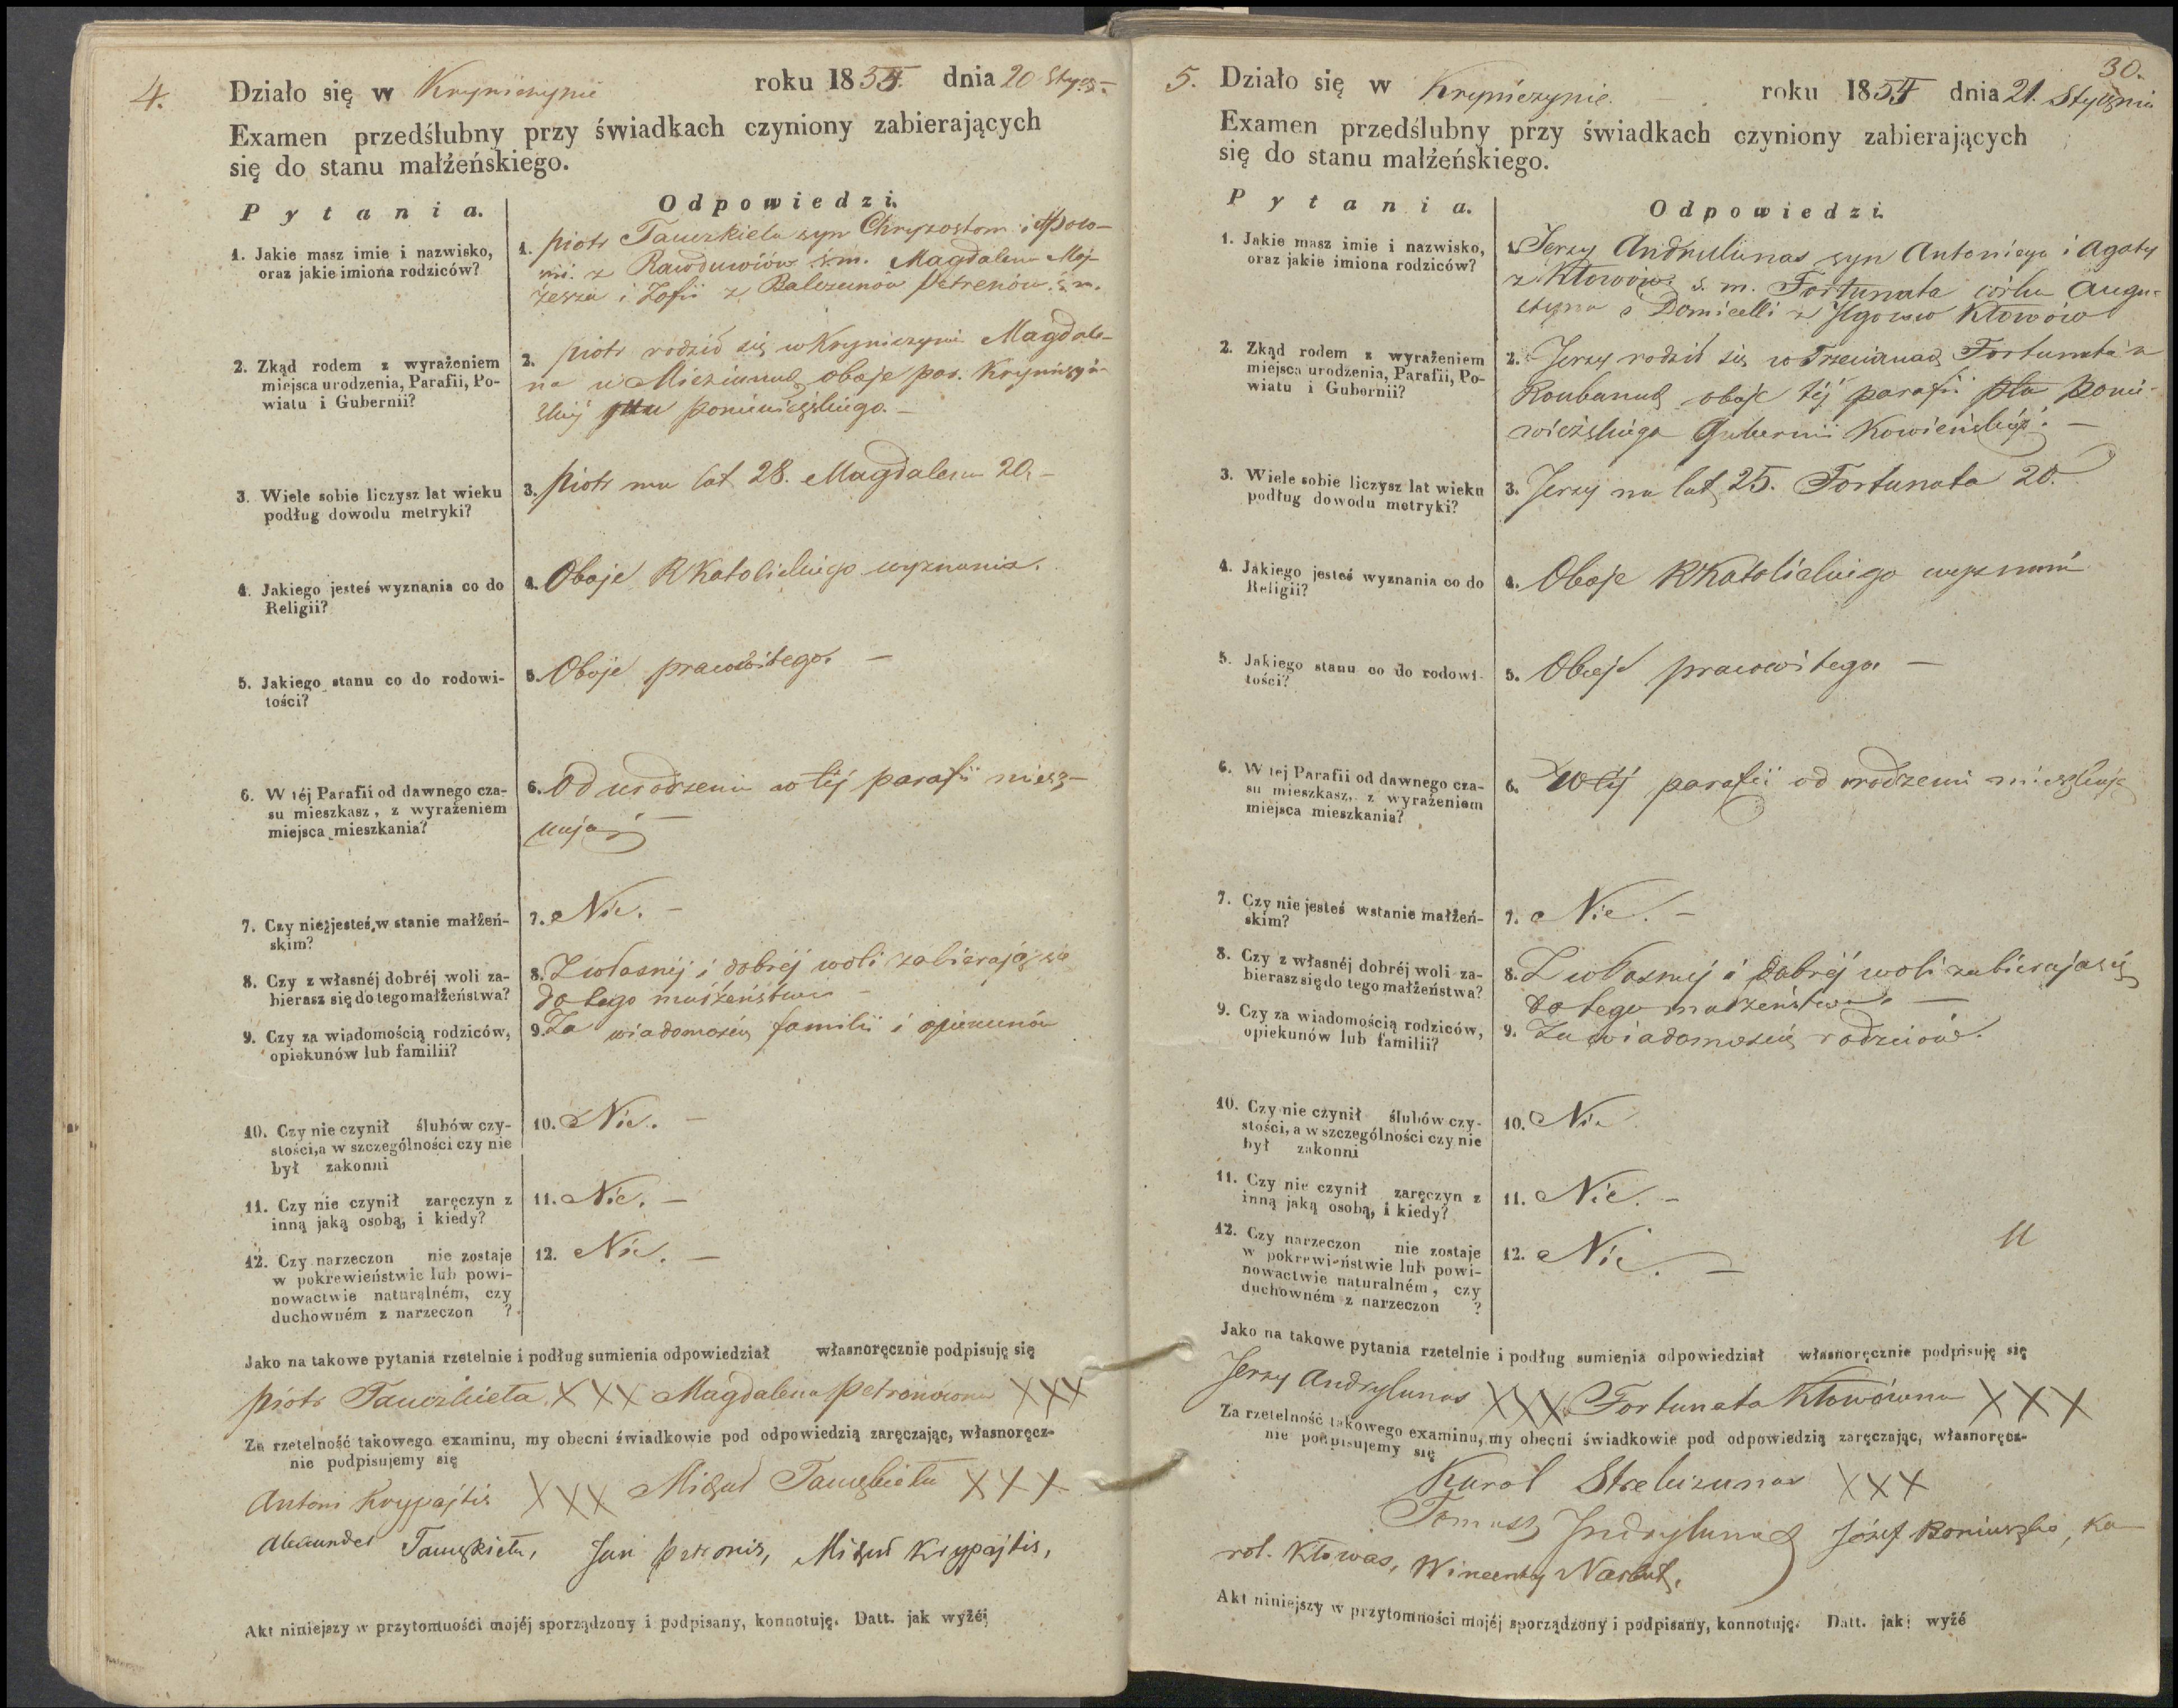 4.
Działo się w Kryniczynie roku 1854. dnia 20 Stycz.
Examen przedślubny przy świadkach czyniony zabierających
się do stanu małżeńskiego.
Pytania.
Odpowiedzi.
1. Jakie masz imie i nazwisko,
oraz jakie imiona rodziców?
1. Piotr Tauczkiela syn Chryzostom i Apolo-
nii z Rawduwiów ś.m. Magdalena Moj-
żesza i Zofii z Balczunów Petrenów. ś.m.
2. Zkąd rodem z wyrażeniem
miejsca urodzenia, Parafii, Po-
wiatu i Gubernii?
2. Piotr rodził się w Kryniczynie Magdale-
na w oboje par. Kryniczyń-
skiej ptu Poniewieżskiego. –
3. Wiele sobie liczysz lat wieku
podług dowodu metryki?
3. Piotr ma lat 28. Magdalena 20. –
4. Jakiego jesteś wyznania co do
Religii?
4. Oboje RKatolickiego wyznania.
5. Jakiego stanu co do rodowi-
tości?
5. Oboje prawowitego. –
6. W téj Parafii od dawnego cza-
su mieszkasz, z wyrażeniem
miejsca mieszkania?
6. Od urodzenia w téj parafii miesz-
kają –
7. Czy nie jesteś w stanie małżeń-
skim?
7. Nie. –
8. Czy z własnéj dobréj woli za-
bierasz się do tego małżeństwa?
8. Z własnéj i dobréj woli zabierają się
do tego małżeństwa –
9. Czy za wiadomością rodziców,
opiekunów lub familii?
9. Za wiadomością familii i opiekunów
10. Czy nie czynił ślubów czy-
stości, a w szczególności czy nie
był zakonni
10. Nie. –
11. Czy nie czynił zaręczyn z
inną jaką osobą, i kiedy?
11. Nie. –
12. Czy narzeczon nie zostaje
w pokrewieństwie lub powi-
nowactwie naturalném, czy
duchowném z narzeczon ?
12. Nie. –
Jako na takowe pytania rzetelnie i podług sumienia odpowiedział własnoręcznie podpisuję się
Piotr Tauczkieta XXX Magdalena Petronowna XXX
Za rzetelność takowego examinu, my obecni świadkowie pod odpowiedzią zaręczając, własnoręcz-
nie podpisujemy się
Antoni Krypajtis XXX Michał Tauczkieta XXX
Alexander Tauczkieta, Jan Petronis, Michał Krypajtis,
Akt niniejszy w przytomności mojéj sporządzony i podpisany, konnotuję. Datt. jak wyżéj
30.
5. Działo się w Kryniczynie. roku 1854 dnia 21. Stycznia
Examen przedślubny przy świadkach czyniony zabierających
się do stanu małżeńskiego.
Pytania.
Odpowiedzi.
1. Jakie masz imie i nazwisko,
oraz jakie imiona rodziców?
1. Jerzy Andrulunas syn Antoniego i Agaty
z Kłowów. ś. m. Fortunata córka Augu-
styna i Domicelli z Kłowów
2. Zkąd rodem z wyrażeniem
miejsca urodzenia, Parafii, Po-
wiatu i Gubernii?
2. Jerzy rodził się w Fortunata w
Roubanach oboje téj parafii ptu Ponie-
wieżskiego Gubernii Kowieńskiéj. –
3. Wiele sobie liczysz lat wieku
podług dowodu metryki?
3. Jerzy ma lat 25. Fortunata 20.
4. Jakiego jesteś wyznania co do
Religii?
4. Oboje RKatolickiego wyznania
5. Jakiego stanu co do rodowi-
tości?
5. Oboje prawowitego –
6. W tej Parafii od dawnego cza-
su mieszkasz, z wyrażeniem
miejsca mieszkania?
6. W téj parafii od urodzenia mieszkają
7. Czy nie jesteś wstanie małżeń-
skim?
7. Nie. –
8. Czy z własnéj dobréj woli za-
bierasz się do tego małżeństwa?
8. Z własnéj i dobréj woli zabierają się
do tego małżeństwa. –
9. Czy za wiadomością rodziców,
opiekunów lub familii?
9. Za wiadomością rodziców.
10. Czy nie czynił ślubów czy-
stości, a w szczególności czy nie
był zakonni
10. Nie
11. Czy nie czynił zaręczyn z
inną jaką osobą, i kiedy?
11. Nie. –
12. Czy narzeczon nie zostaje
w pokrewieństwie lub powi-
nowactwie naturalném, czy
duchowném z narzeczon ?
12. Nie. –
Jako na takowe pytania rzetelnie i podług sumienia odpowiedział własnoręcznie podpisuję się
Jerzy Andrylunas XXX Fortunata Kłowówna XXX
Za rzetelność takowego examinu, my obecni świadkowie pod odpowiedzią zaręczając, własnoręcz-
nie podpisujemy się
Karol Strelczunas XXX
Tomasz Indrylunas Józef Boniuszko, Ka-
rol. Kłowas, Wincenty Narbut,
Akt niniejszy w przytomności mojéj sporządzony i podpisany, konnotuję. Datt. jak wyżé